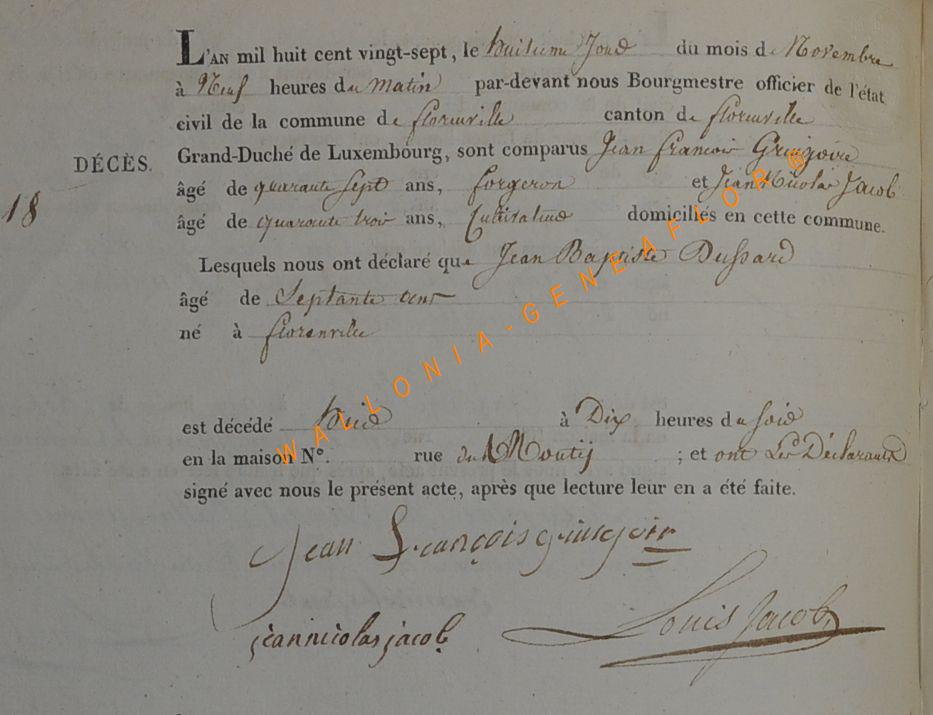 L'AN mil huit cent vingt-sept, le huitieme Jour du mois de Novembre
à Neuf heures du matin par-devant nous Bourgmestre officier de l'état
civil de la commune de florenville canton de florenville
DÉCÈS. Grand-Duché de Luxembourg, sont comparus Jean francois Gringoire
18 âgé de quarante sept ans, forgeron et Jean Nicolas Jacob
âgé de quarante trois ans, Cultivateur domiciliés en cette commune.
Lesquels nous ont déclaré que Jean Baptiste Dussard
âgé de Septante
né à florenville
est décédé hier à Dix heures du soir
en la maison N°. rue du Moutij ; et ont Les Déclarants
signé avec nous le présent acte, après que lecture leur en a été faite.
Jean François gringoir
jean nicolas jacob Louis Jacob
WALLONIA-GENEAFLOR ®